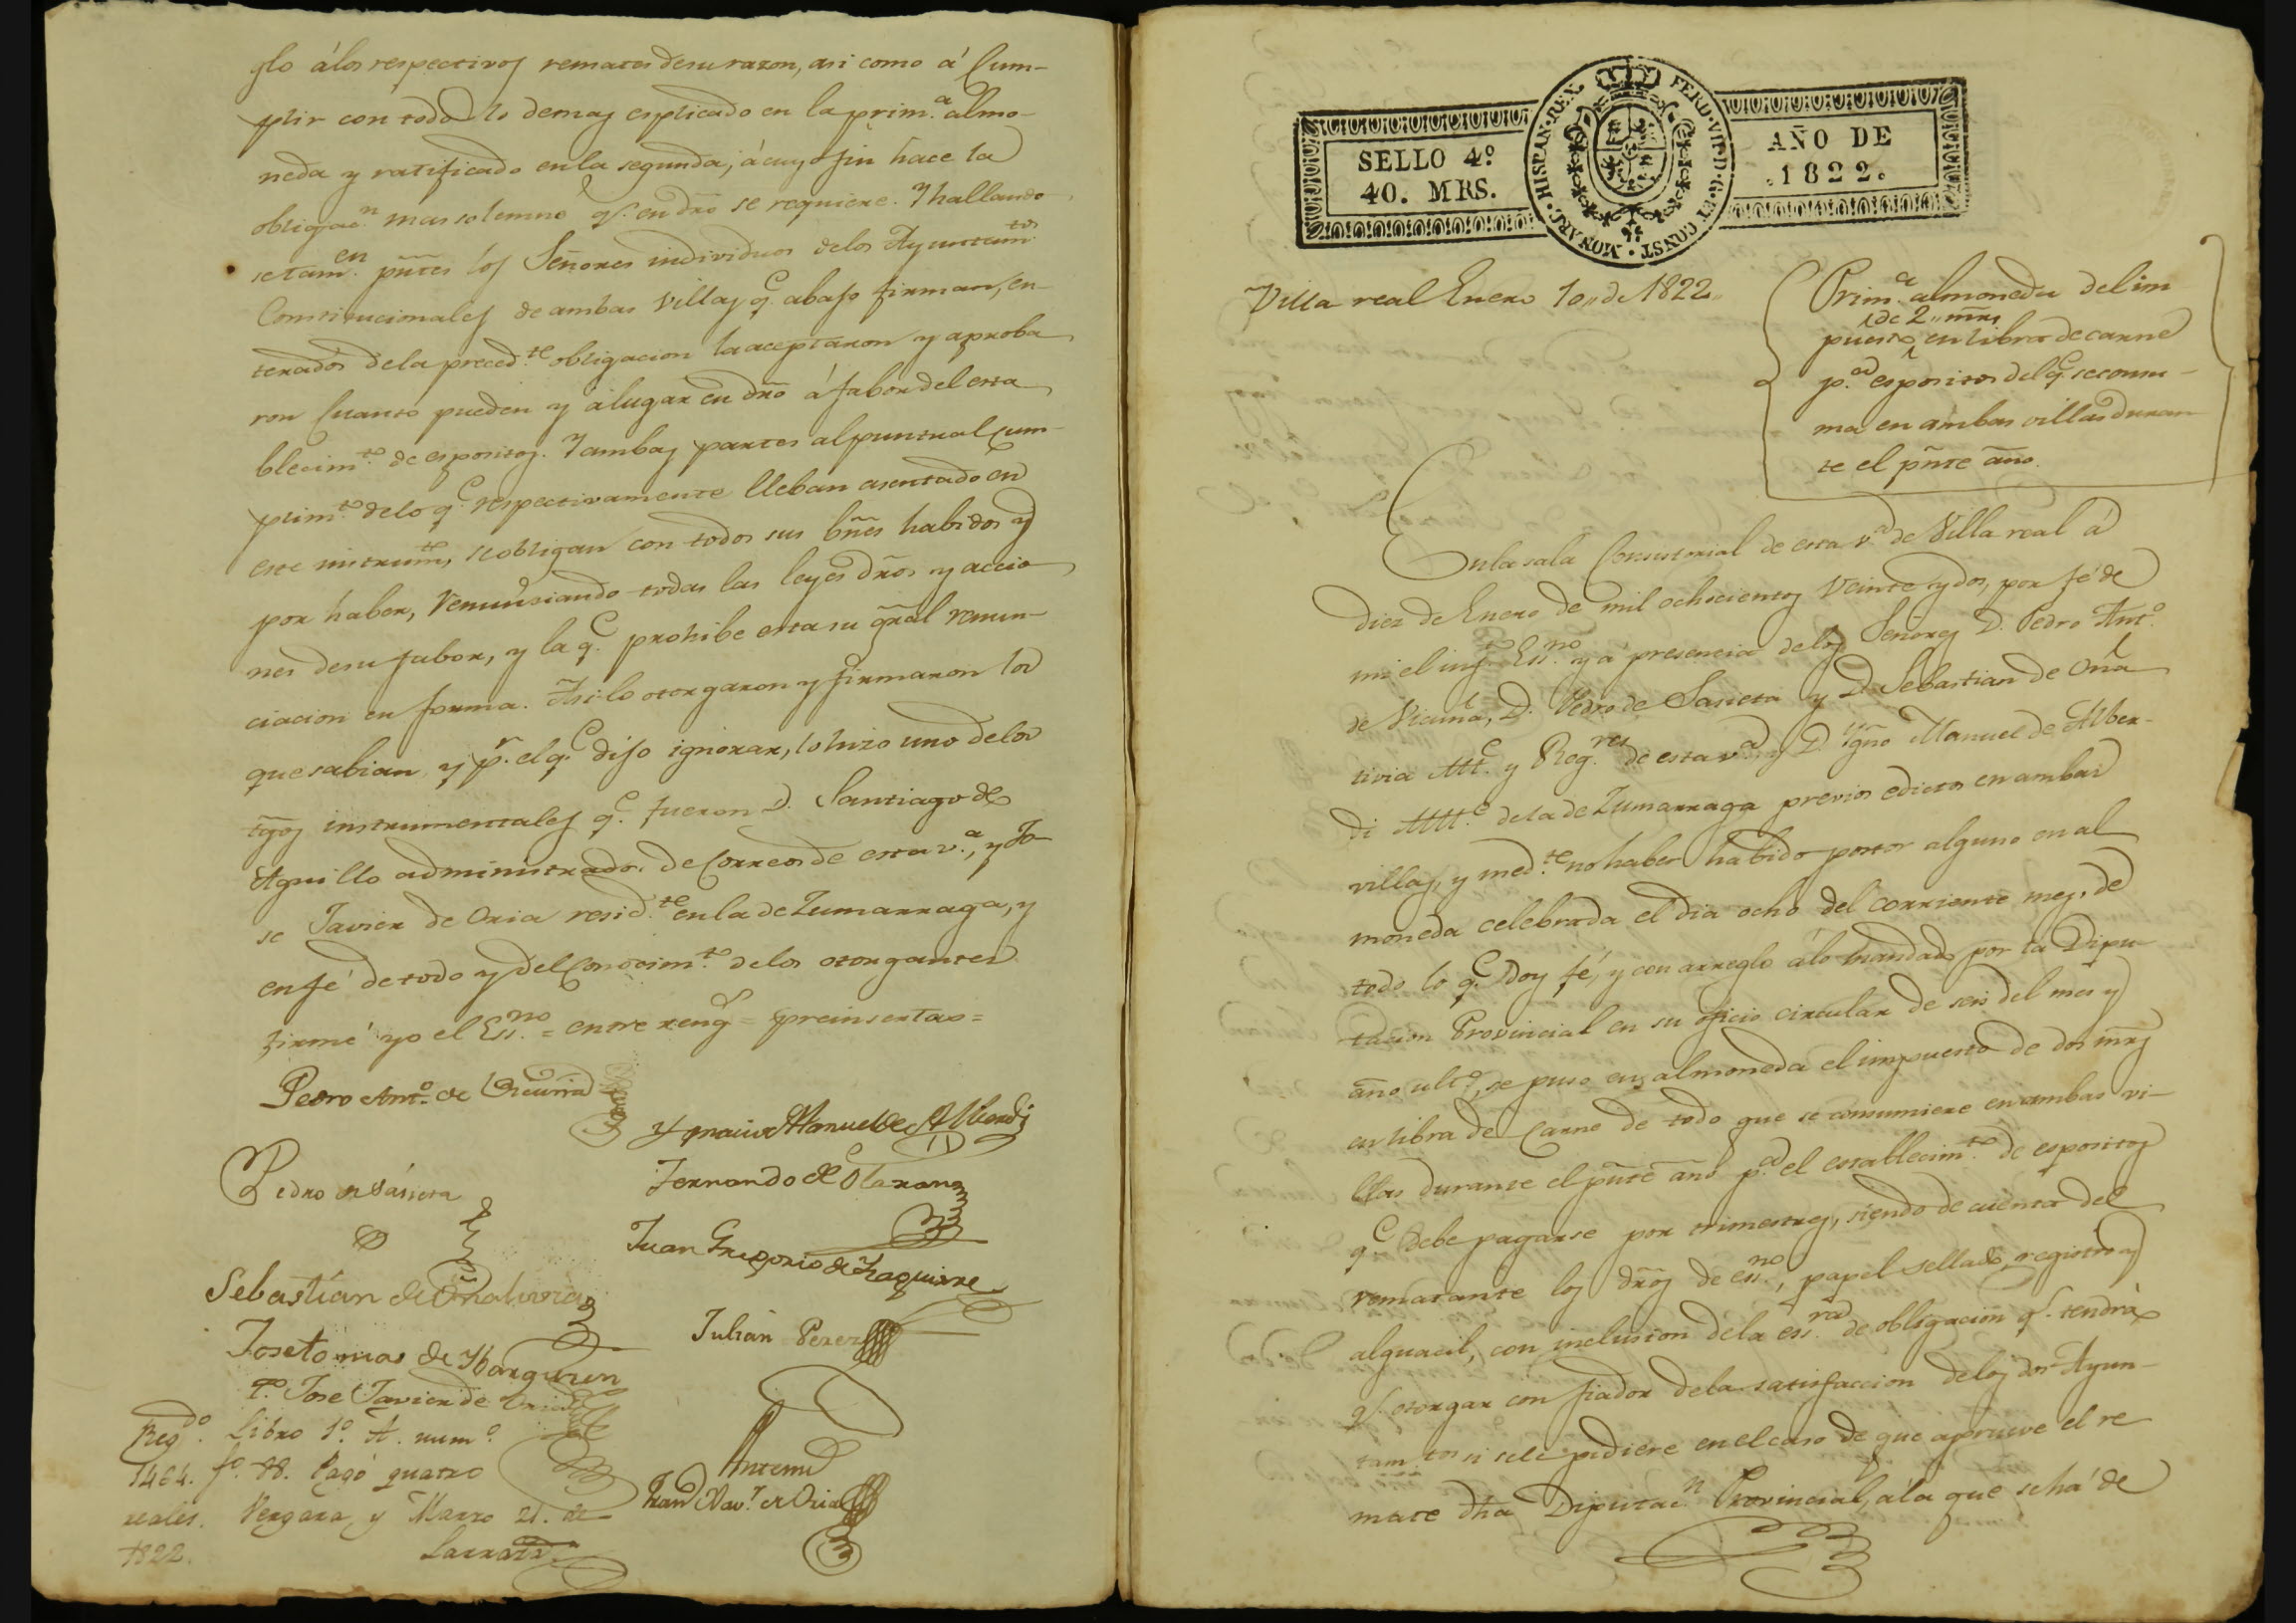 glo á los respectivos remates de su razon, asi como á Cum-
plir con todo lo demas esplicado en la prim.ª almo-
neda y ratificado en la segunda, á cuyo fin hace la
obligac.n mas solemne q.e en dro se requiere. Y hallando
se tam.en pñtes los Señores individuos de los Ayuntam.tos
Constitucionales de ambas Villas q.e abajo firman, en-
terados de la preced.te obligacion la aceptaron y aproba
ron Cuanto pueden y á lugar en dro á fabor del esta
blecim.to de espositos. Y ambas partes al puntual Cum-
plim.to de lo q.e respectivamente lleban asentado en
este instrum.to, se obligan con todos sus bñes habidos y
por haber, renunsiando todas las leyes dros y accio
nes de su fabor, y la q.e prohibe esta su gral renun-
ciacion en forma. Asi lo otorgaron y firmaron los
que sabian, y p.r el q.e dijo ignorar, lo hizo uno de los
tgos instrumentales q.e fueron D. Santiago de
Aguillo administrador de Correos de esta v.ª, y Jo-
se Javier de Oria resid.te en la de Zumarraga, y
en fé de todo y del Conocim.to de los otorgantes
firmé yo el Es.no = entre reng.s = preinsertas =
Pedro Ant.o de Vicuña
Ygnacio Manuel de Alberdi
Pedro de Sasieta
Fernando de Olaran
Juan Gregorio de Yzaguirre
Sebastian de Oñativia
Julian Perez
Jose tomas de Ybarguren
T.o Jose Javier de Oria
Antemi
Fran.co Xav.r de Oria
Reg.do Libro 1.o A. num.o
1464. f.o 78. Pagó quatro
reales. Vergara y Marzo 21. de
1822.
SELLO 4.o
40. MRS.
HISPAN. REX. FERD. VII. D. G. ET CONST. MONARC.
AÑO DE
.1822.
Villa real Enero 10,, de 1822,,
Prim.ª almoneda del im
de 2,, mrs
puesto en libra de carne
p.ª espositos del q.e se consu-
ma en ambas villas duran
te el pñte año.
En la sala Consistorial de esta v.ª de Villa real á
diez de Enero de mil ochocientos Veinte y dos, por fé de
mi el inf.to Es.no y á presencia de los Señores D. Pedro Ant.o
de Vicuña, D. Pedro de Sasieta y D. Sebastian de Oña
tivia Alc.e y Reg.res de esta v.ª, y D. Ygño Manuel de Alber-
di Alc.e de la de Zumarraga previos edictos en ambas
villas, y med.te no haber habido postor alguno en al
moneda celebrada el dia ocho del corriente mes, de
todo lo q.e doy fé, y con arreglo á lo mandado por la Dipu
tacion Provincial en su oficio circular de seis del mes y
año ult.o, se puso en almoneda el impuesto de dos mrs
en libra de Carne de todo que se consumiere en ambas vi-
llas durante el pñte año p.ª el establecim.to de espositos
q.e debe pagarse por trimestres, siendo de cuenta del
rematante los dros de es.no, papel sellado, registro y
alguacil, con inclusion de la es.ra de obligacion q.e tendrá
q.e otorgar con fiador de la satisfaccion de los dos Ayun-
tam.tos si se le pidiere en el caso de que aprueve el re
mate dha Diputac.n Provincial, á la que se há de